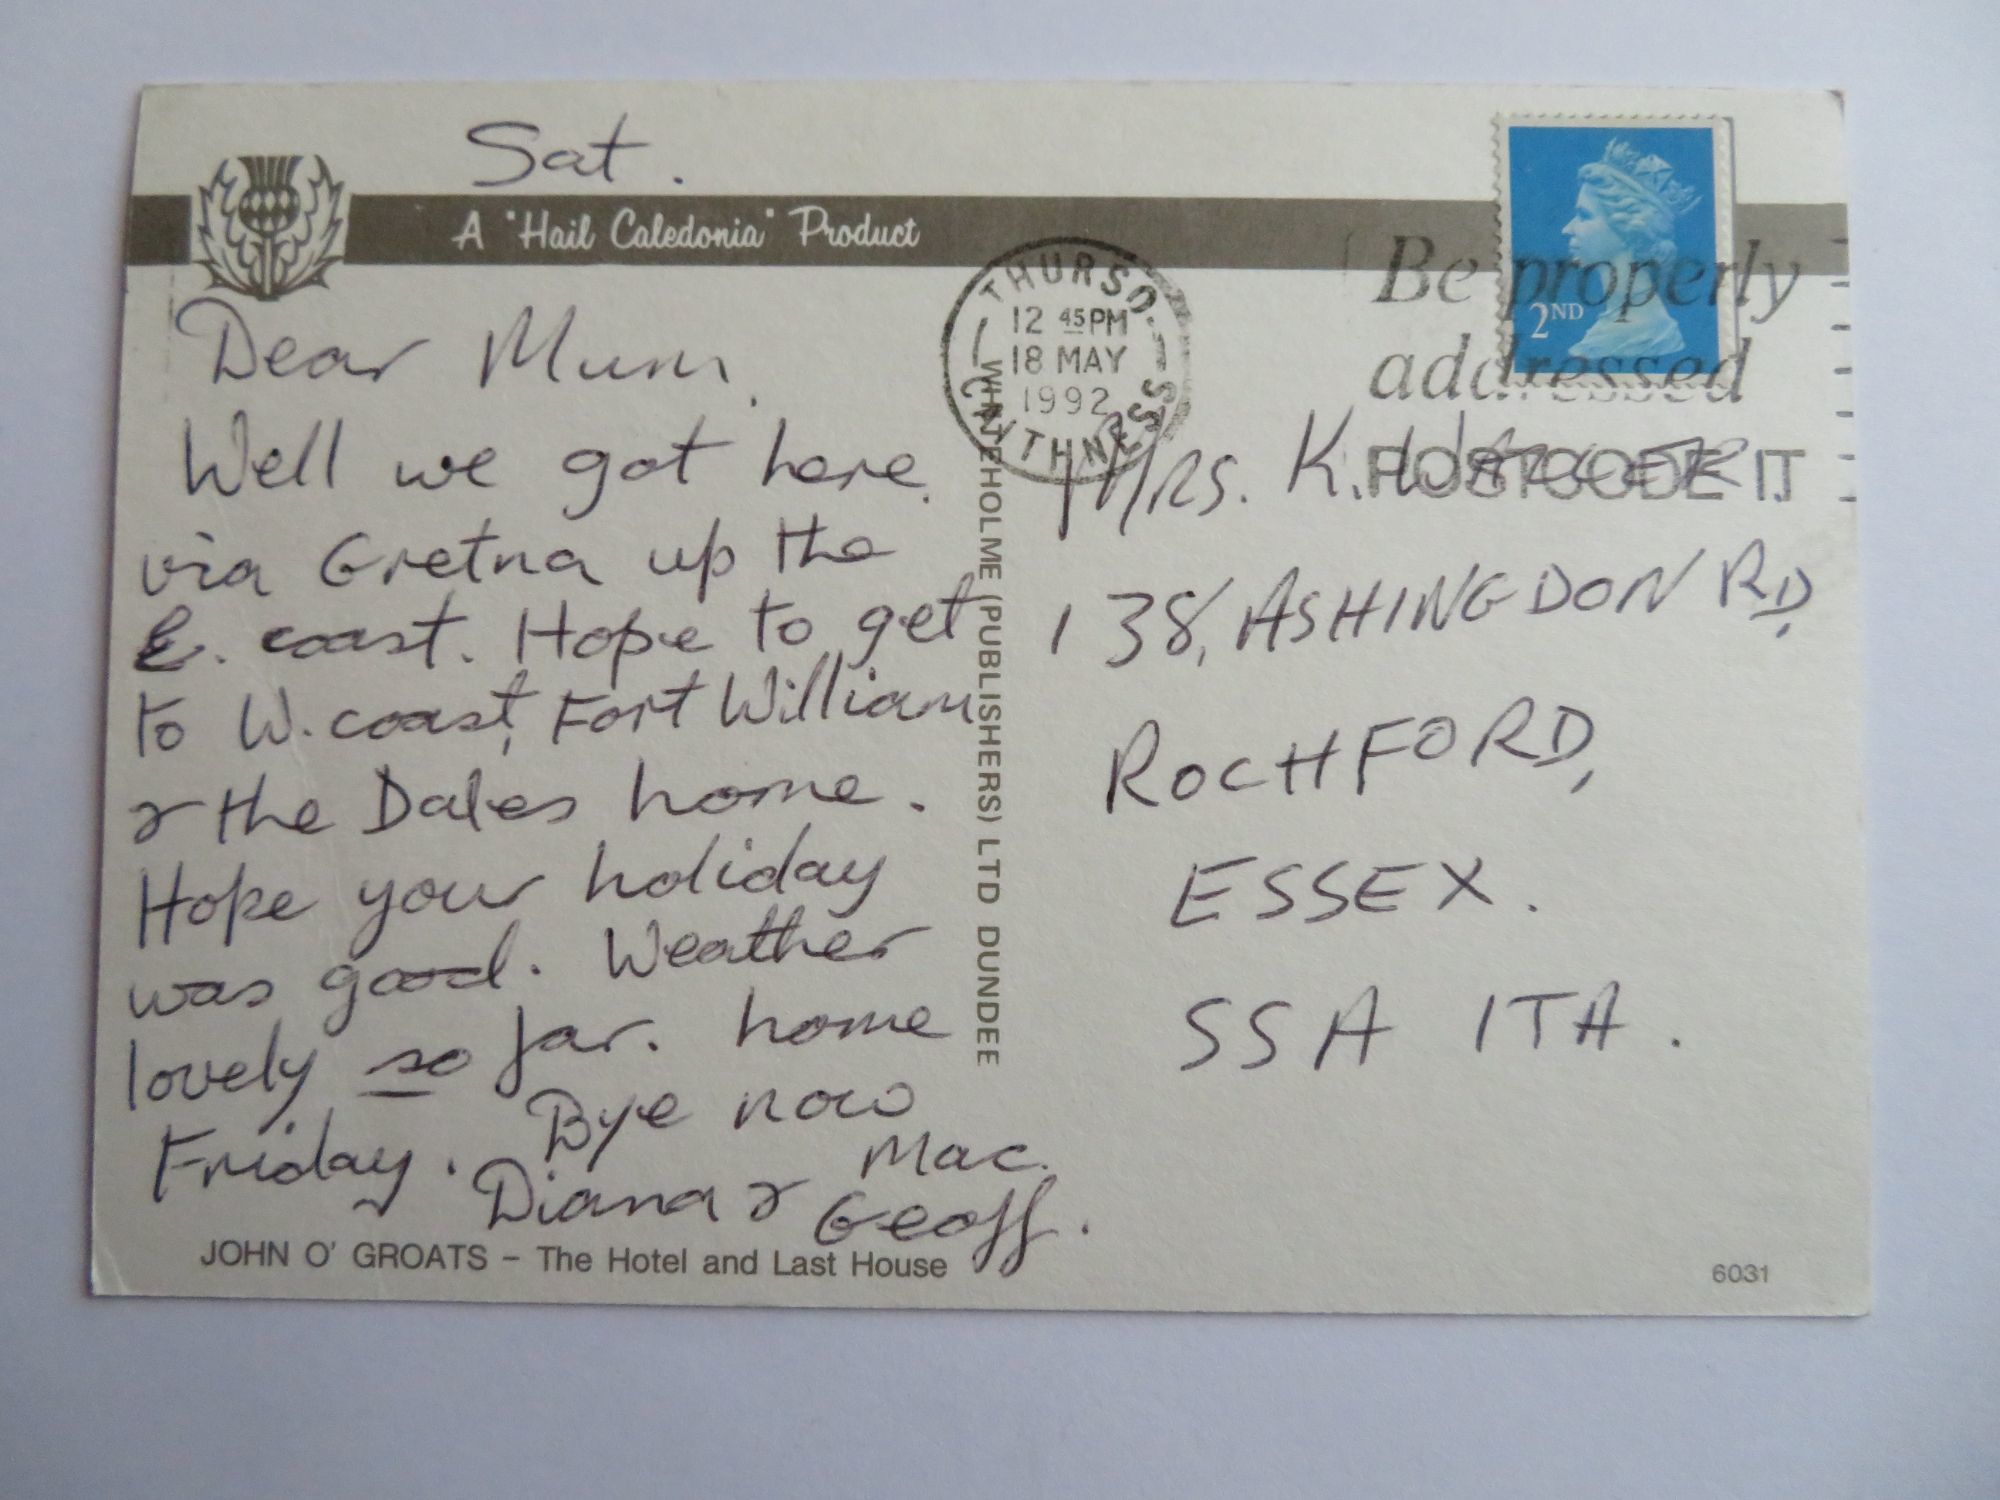 Sat.
A "Hail Caledonia" Product
Dear Mum.
Well we got here.
via Gretna up the
E. coast. Hope to get
to W. coast, Fort William
& the Dales home.
Hope your holiday
was good. Weather
lovely so far. home
Friday. Bye now
Mac.
Diana & Geoff.
JOHN O' GROATS – The Hotel and Last House
WHITEHOLME (PUBLISHERS) LTD DUNDEE
THURSO.
12 45PM
18 MAY
1992
CAITHNESS
2ND
Be properly
addressed
POSTCODE IT
Mrs. K.
138, ASHINGDON RD,
ROCHFORD,
ESSEX.
SSA 1TA.
6031